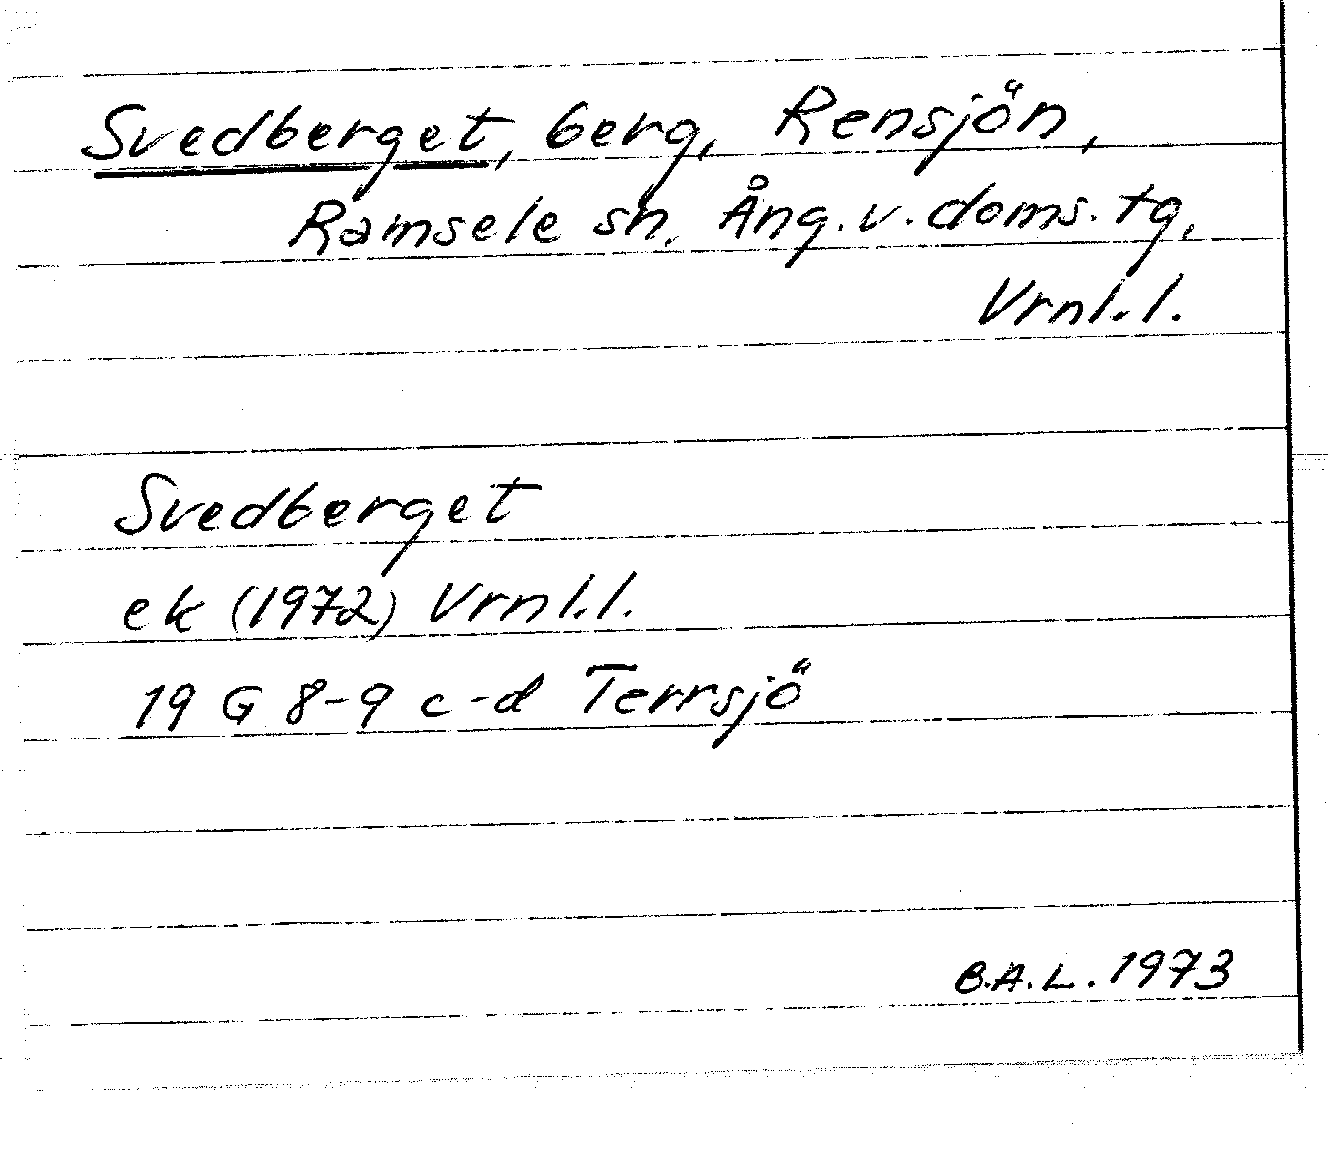 Svedberget, berg, Rensjön,
Ramsele sn. Ång. v. doms. tg,
Vrnl. l.
Svedberget
ek (1972) Vrnl. l.
19 G 8-9 c-d Terrsjö
B.A.L. 1973